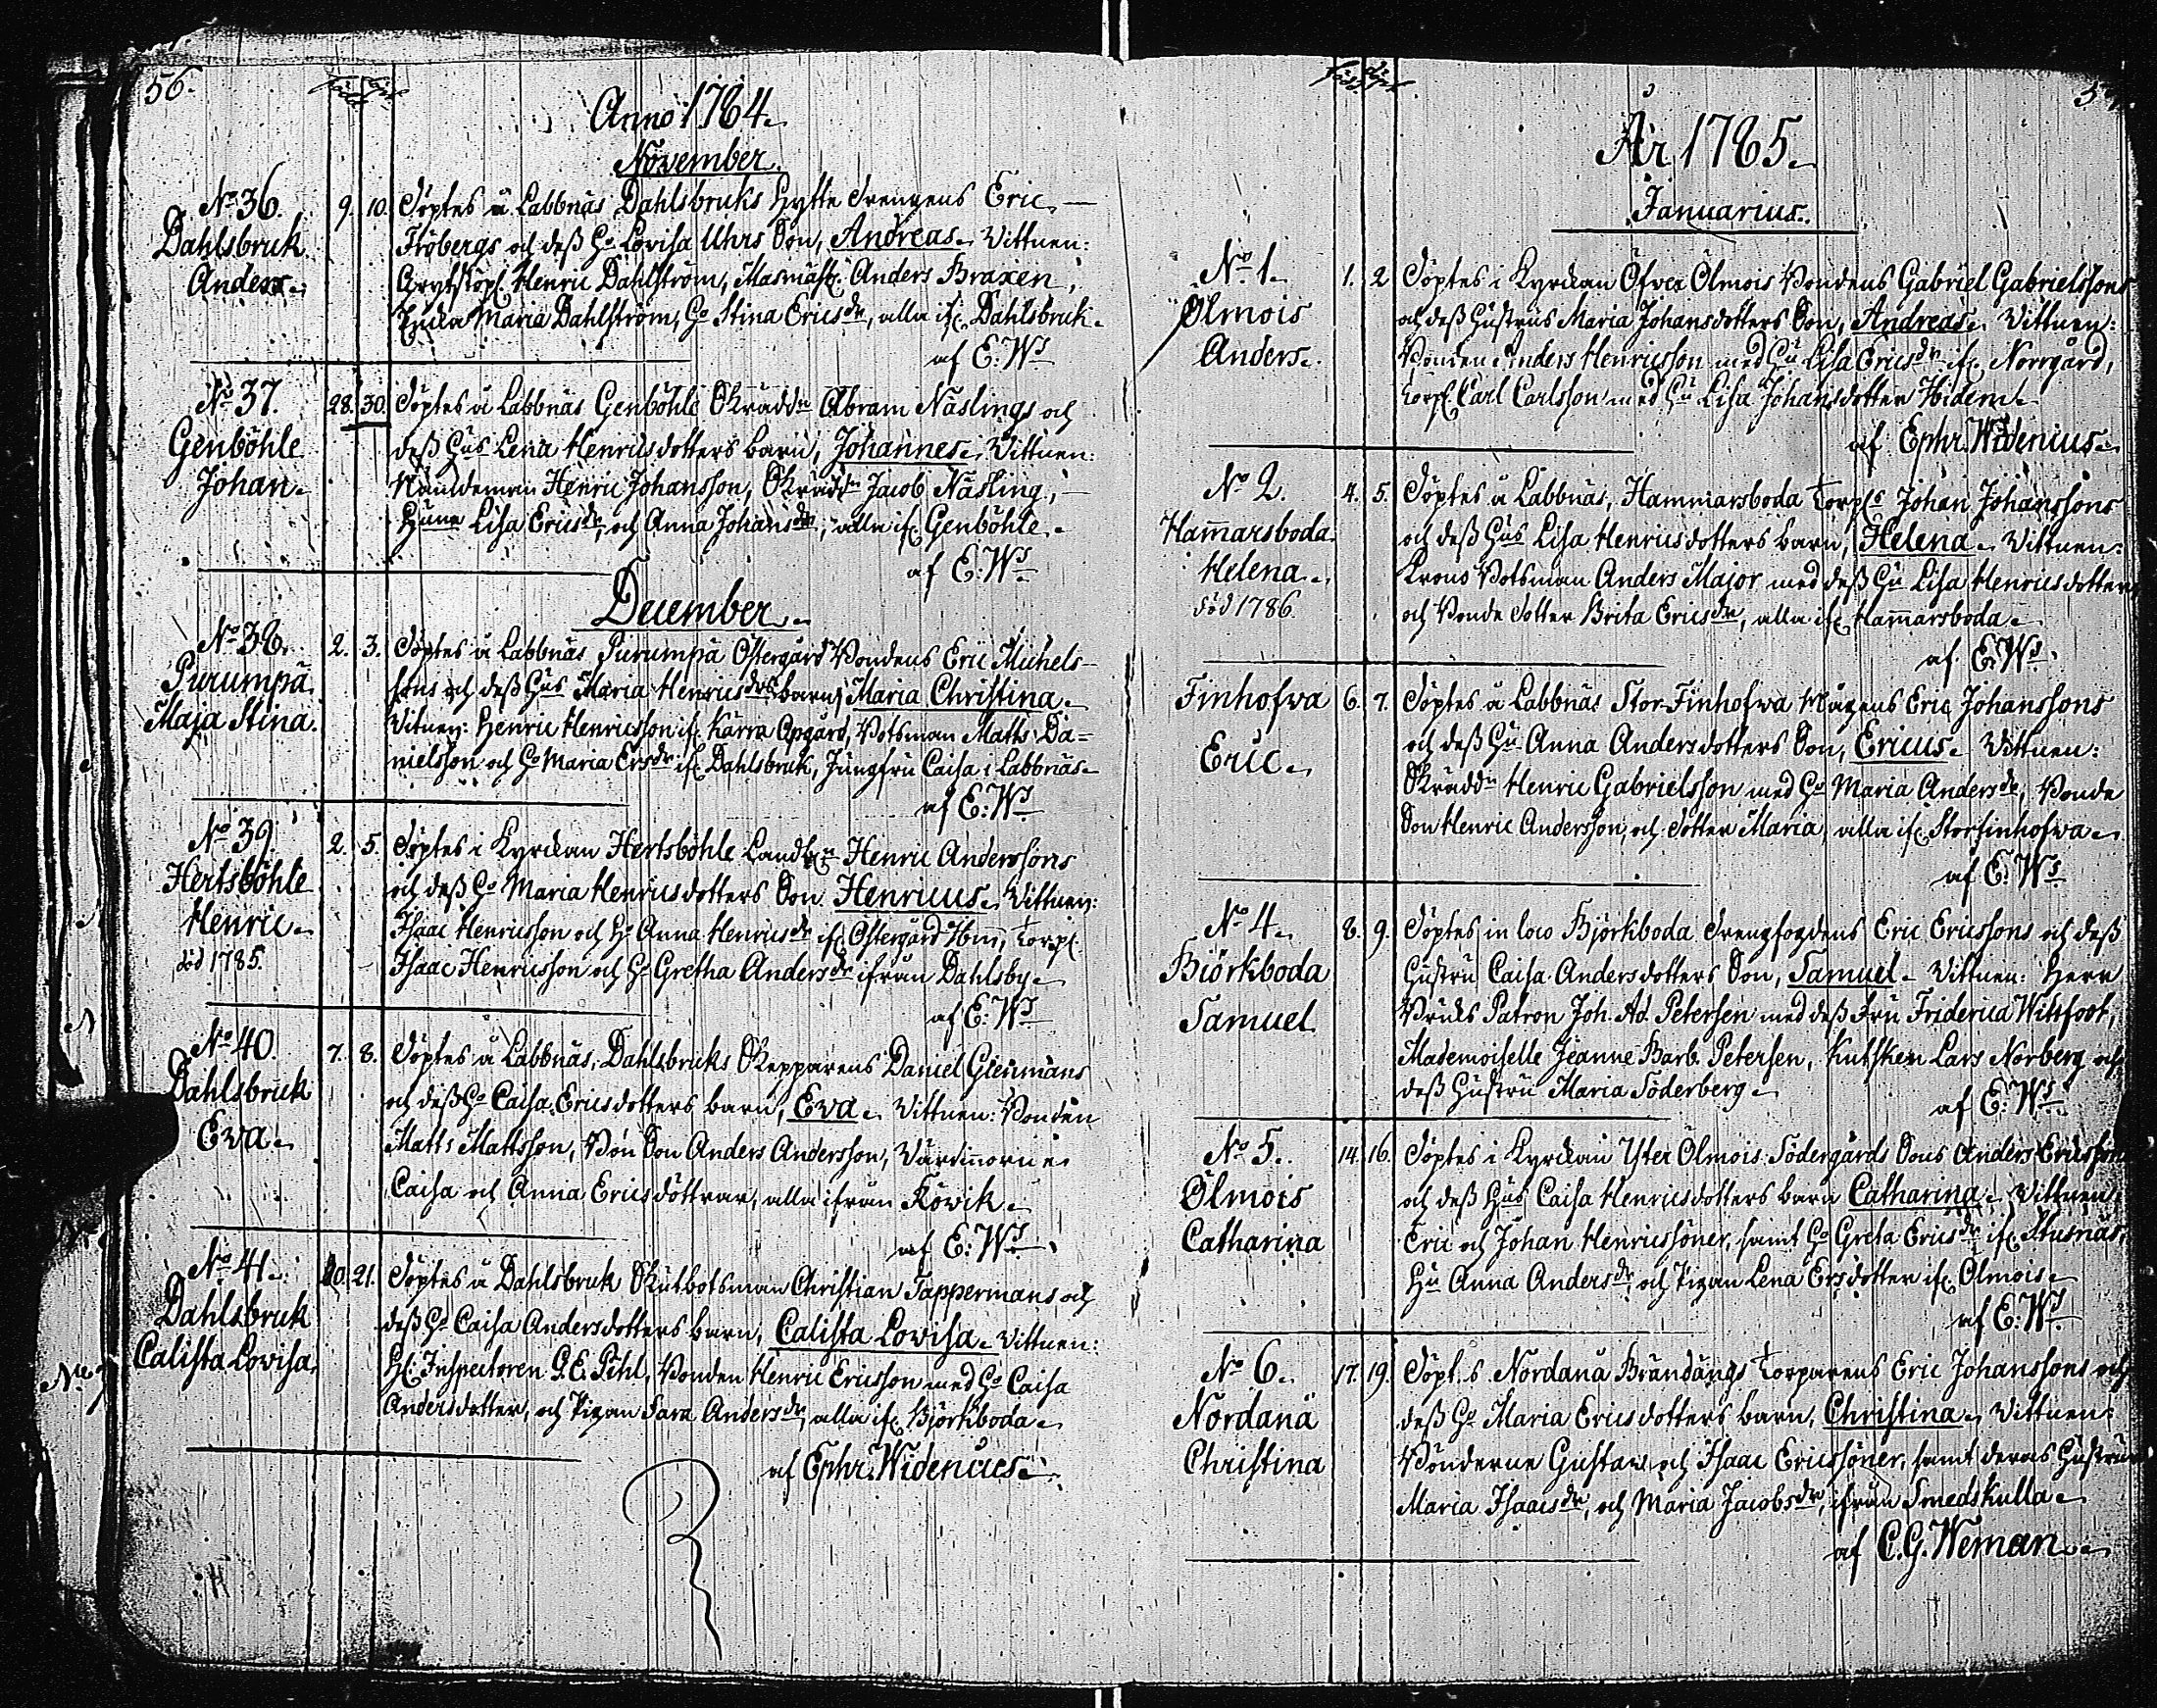 56.
Anno 1784.
November.
No 36.
Dahlsbruk
Anders.
9. 10. Döptes å Labbnäs Dahlsbruks Hytte Drengens Eric
Fröbergs och deß Ho Lovisa Uhrs Son, Andreas. Vittnen:
Henric Dahlström, Masmäst: Anders Braxen,
Maria Dahlström, Ho Stina Ericsdr, alla ifr. Dahlsbruk.
af E: Ws
No 37.
Genböhle
Johan.
28. 30. Döptes å Labbnäs Genböhle Skräddn Abram Näslings och
deß Hus Lena Henricsdotters barn, Johannes. Vittnen:
Nämdeman Henric Johansson, Skräddn Jacob Näsling,
Hune Lisa Ericsdr, och Anna Johansdr, alla ifr. Genböhle.
af E: Ws
December.
No 38.
Purumpä
Maja Stina.
2. 3. Döptes å Labbnäs Purumpä Östergård Bondens Eric Michels-
sons och deß Hus Maria Henricsdrs barn, Maria Christina.
Vitnen: Henric Henricsson ifr. Kärra Opgård, Botsman Matts Da=
nielsson och Ho Maria Ersdr ifr. Dahlsbruk, Jungfru Caisa i Labbnäs.
af E: Ws
No 39.
Hertsböhle
Henric.
död 1785.
2. 5. Döptes i Kyrckan Hertsböhle Landbn Henric Anderssons
och deß Ho Maria Henricsdotters Son Henricus. Vittnen:
Isaac Henricsson och Ho Anna Henricsdr ifr. Östergård Torp.
Isaac Henricsson och Ho Gretha Andersdr ifrån Dahlsby.
af E: Ws
No 40.
Dahlsbruk
Eva.
7. 8. Döptes å Labbnäs, Dahlsbruks Skepparens Daniel
och deß Ho Caisa Ericsdotters barn, Eva. Vittnen: Bonden
Matts Mattsson, Bon Son Anders Andersson,
Caisa och Anna Ericsdöttrar, alla ifrån Kövik.
af E: Ws
No 41.
Dahlsbruk
Calista Lovisa.
20. 21. Döptes å Dahlsbruk Skutbotsman Christian Tappermans och
deß Ho Caisa Andersdotters barn, Calista Lovisa. Vittnen:
Hr Inspectoren G. E. Pihl, Bonden Henric Ericsson med Ho Caisa
Andersdotter, och Pigan Sara Andersdr, alla ifr. Björkboda.
af Ephr. Widenius.
År 1785.
Januarius.
No 1.
Ölmois
Anders.
1. 2 Döptes i Kyrckan Öfver Ölmois Bondens Gabriel Gabrielssons
och deß Hustrus Maria Johansdotters Son, Andreas. Vittnen:
Bonden Anders Henricsson med Hu Lisa Ericsdr ifr. Norrgård,
Torp. Carl Carlsson med Hu Lisa Johansdotter Ibidem.
af Ephr. Widenius.
No 2.
Hammarsboda.
Helena.
död 1786.
4. 5. Döptes å Labbnäs, Hammarsboda Torps Johan Johanssons
och deß Hus Lisa Henricsdotters barn, Helena. Vittnen:
Krono Botsman Anders Major med deß Hu Lisa Henricsdotter,
och Bonde dotter Brita Ericsdr, alla ifr. Hammarsboda.
af E. Ws.
Finhofwa
Eric.
6. 7. Döptes å Labbnäs Stor-Finhofwa Mågens Eric Johanssons
och deß Hu Anna Andersdotters Son, Ericus. Vittnen:
Skräddn Henric Gabrielsson med Ho Maria Andersdr, Bonde
Son Henric Andersson, och dotter Maria, alla ifr. Storfinhofwa.
af E. Ws
No 4.
Biörkboda
Samuel.
8. 9. Döptes in loco Björkboda Drengfogdens Eric Ericssons och deß
Hustru Caisa Andersdotters Son, Samuel. Vittnen: Herr
Bruks Patron Joh. Ad. Petersen med deß Fru Fridericà Witsfoot,
Mademoiselle Jeanne Barb. Petersen, Kutsken Lars Norberg och
deß Hustru Maria Söderberg.
af E: Ws
No 5.
Ölmois
Catharina
14. 16. Döptes i Kyrckan Yter Ölmois Södergårds Sons Anders Ericssons
och deß Hus Caisa Henricsdotters barn Catharina. Vittnen:
Eric och Johan Henricssöner, samt Ho Greta Ericsdr ifr. Stusnäs,
Hu Anna Andersdr, och Pigan Lena Ersdotter ifr. Ölmois.
af E: Ws
No 6.
Nordanå
Christina
17. 19. Döptes Nordanå Brändängs Torparens Eric Johanssons och
deß Ho Maria Ericsdotters barn, Christina. Vittnen:
Bönderne Gustav och Isaac Ericssöner, samt deras Hustrur
Maria Isaacsdr, och Maria Jacobsdr, ifrån Smedskulla.
af C. G. Weman.